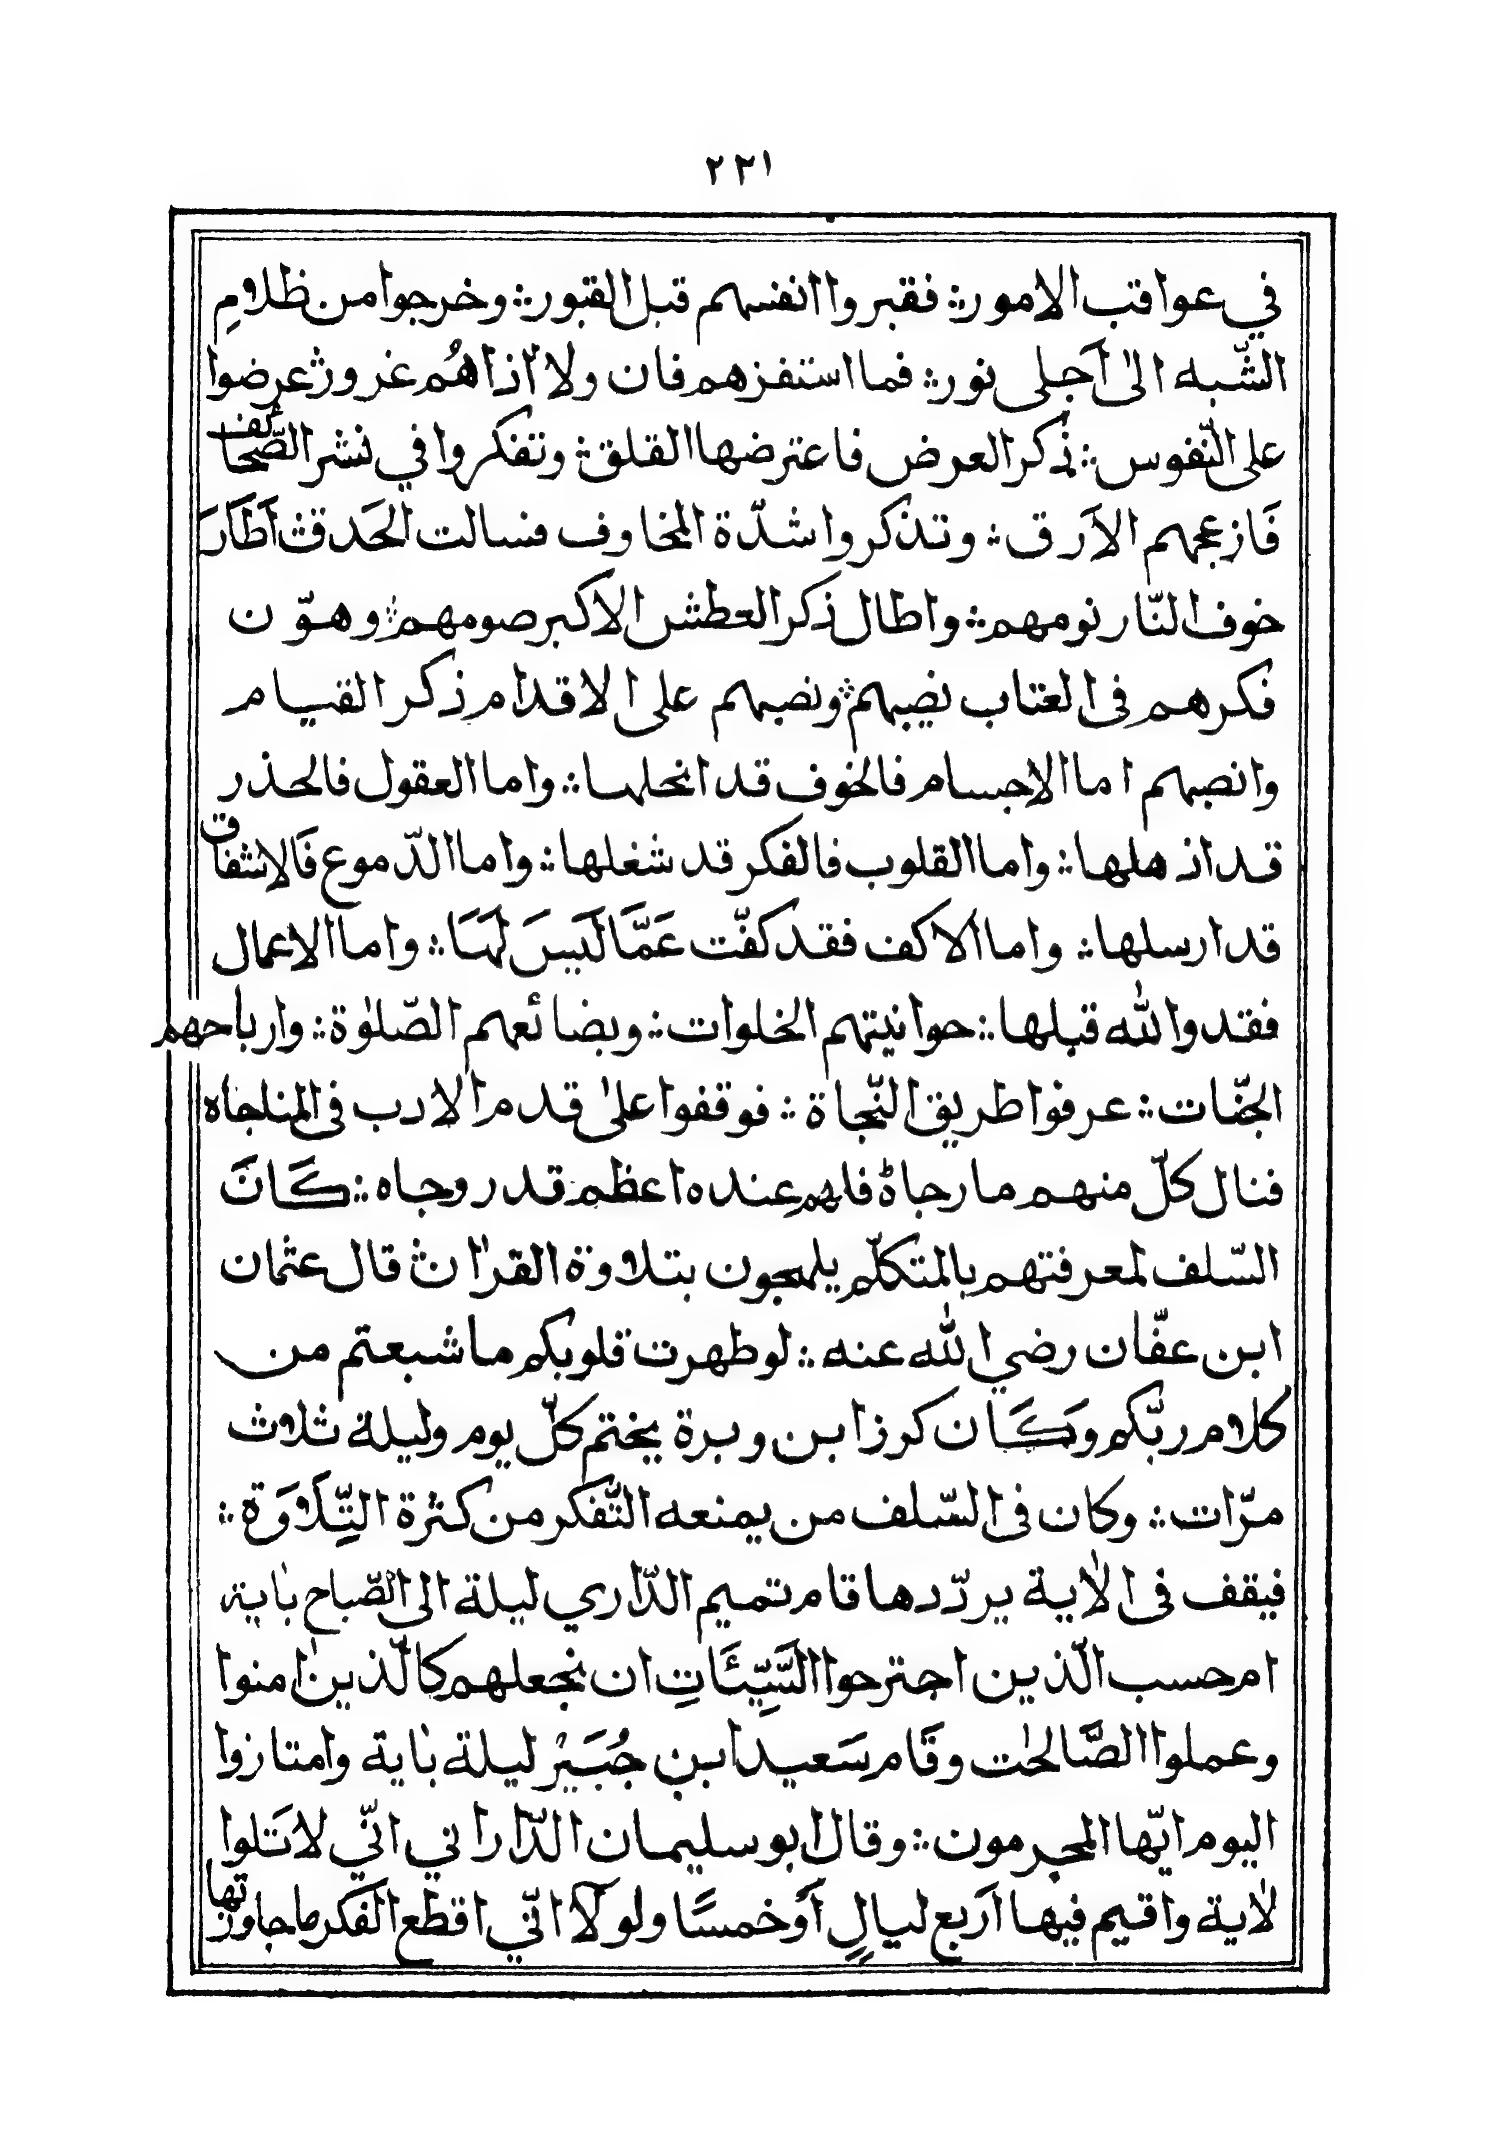 ٢٢١
في عواقب الامور؞ فقبروا انفسهم قبل القبور؞ وخرجوا من ظلامِ
الشّبه الىٰ اَجلى نور؞ فما استفزهم فان ولا اذا هُم غرور؞ عرضوا
على النّفوس؞ ذكر العرض فاعترضها القلق؞ وتفكروا في نشر الصّحائف
فَازعجهم الاَرق؞ وتذكروا شدّة المخاوف فسالت الحَدق؞ اَطَارَ
خوف النّار نومهم؞ واطال ذكر العطش الاكبر صومهم؞ وهوّن
فكرهم فى العتاب نصيبهم؞ ونصبهم على الاقدام ذكر القيام
وانصبهم اما الاجسام فالخوف قد انحلها؞ واما العقول فالحذر
قد اذهلها؞ واما القلوب فالفكر قد شغلها؞ واما الدّموع فَالاشفاق
قد ارسلها؞ واما الاكف فقد كفّت عَمَّا لَيسَ لَهَا؞ واما الاعمال
فقد والله قبلها؞ حوانيتهم الخلوات؞ وبضائعهم الصّلوٰة؞ وارباحهم
الجنّات؞ عرفوا طريق النّجاة؞ فوقفوا علىٰ قدم الادب فى المناجاه
فنال كلّ منهم ما رجاهُ فاٖهم عنده اعظم قدر وجاه؞ كَانَ
السّلف لمعرفتهم بالمتكلّم يلهجون بتلاوة القراٰن؞ قال عثمان
ابن عفّان رضي الله عنه؞ لو طهرت قلوبكم ما شبعتم من
كلام ربّكم وَكَان كرز ابن وبرة يختم كلّ يوم وليلة ثلاث
مرّات؞ وكان فى السّلف من يمنعه التّفكر من كثرة التِّلَاوَة؞
فيقف فى الاٰية يردّدها قام تميم الدّاري ليلة الى الصّباح باٰية
ام حسب الّذين اجترحوا السَّيِّئَاتِ ان نجعلهم كالّذين اٰمنوا
وعملوا الصَّالحٰت وقَام سَعيد ابن جُبَيْر ليلة باٰية وامتازوا
اليوم ايّها المجرمون؞ وقال ابو سليمان الدّاراني انّي لاَتلوا
لاٰية واقيم فيها اَربع ليالٍ اَوخمسًا ولولَا انّي اقطع الفكر ما جاوزتها